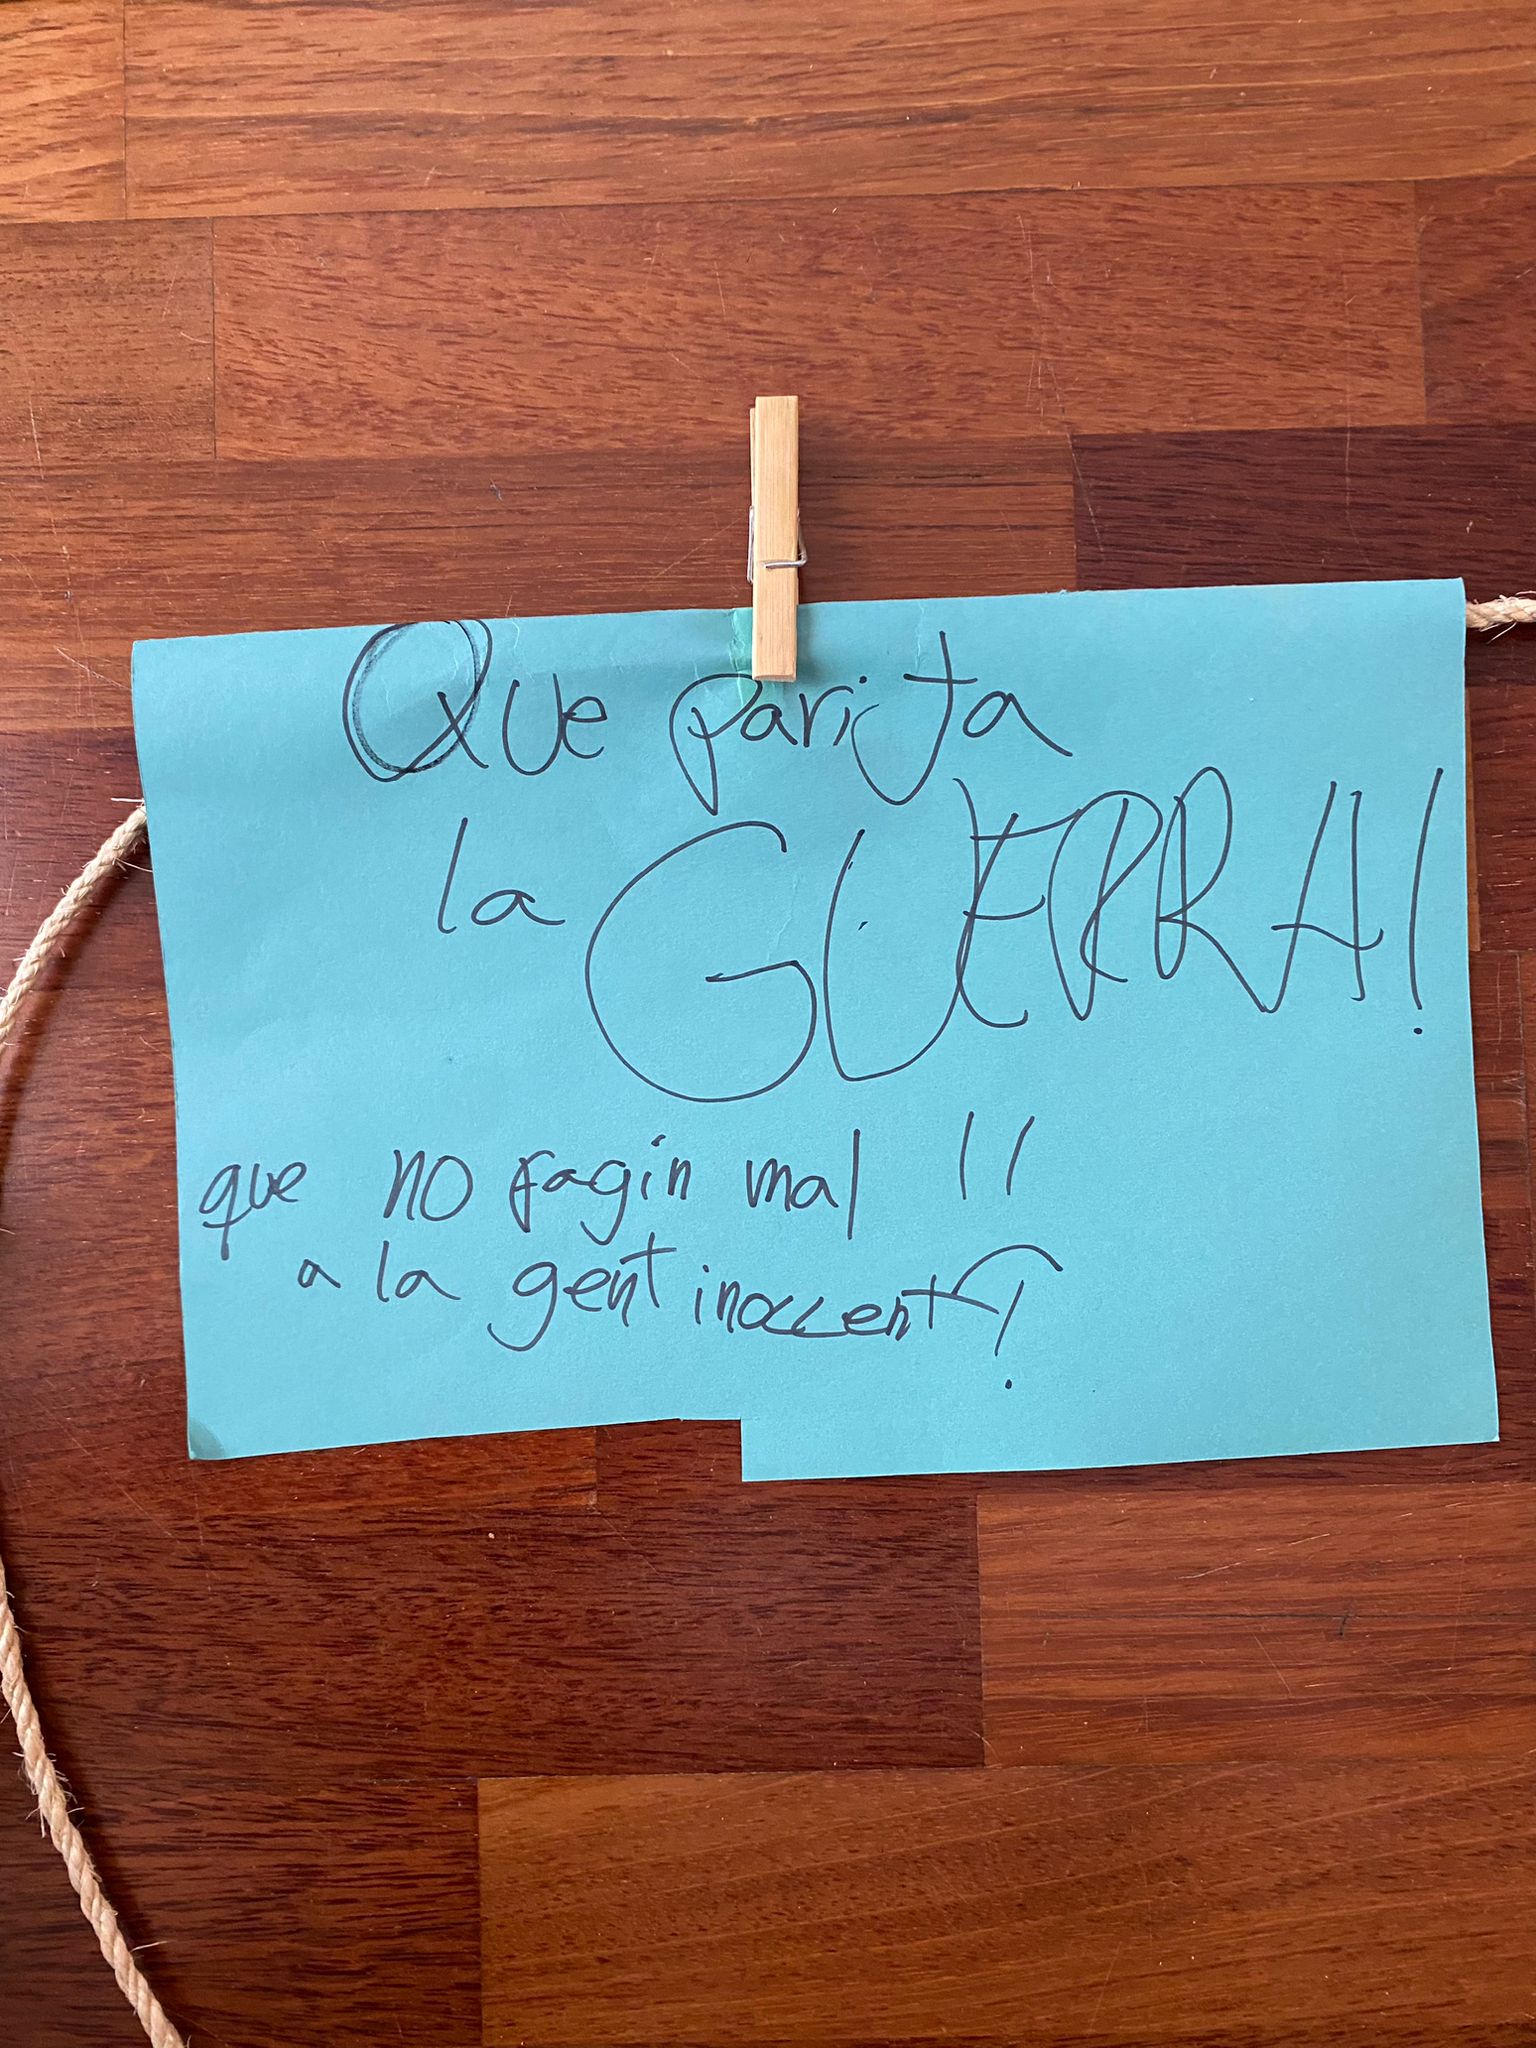 Que parijta
la GUERRA!
que no fagin mal !!
a la gent inoccent!